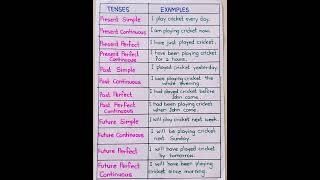 TENSES EXAMPLES
Present Simple I play cricket every day.
Present Continuous I am playing cricket now.
Present Perfect I have just played cricket.
Present Perfect Continuous I have been playing cricket for 2 hours.
Past Simple I played cricket yesterday.
Past Continuous I was playing cricket the whole evening.
Past Perfect I had played cricket before John came.
Past Perfect Continuous I had been playing cricket when John came.
Future Simple I will play cricket next week.
Future Continuous I will be playing cricket next Sunday.
Future Perfect I will have played cricket by tomorrow.
Future Perfect Continuous I will have been playing cricket since morning.